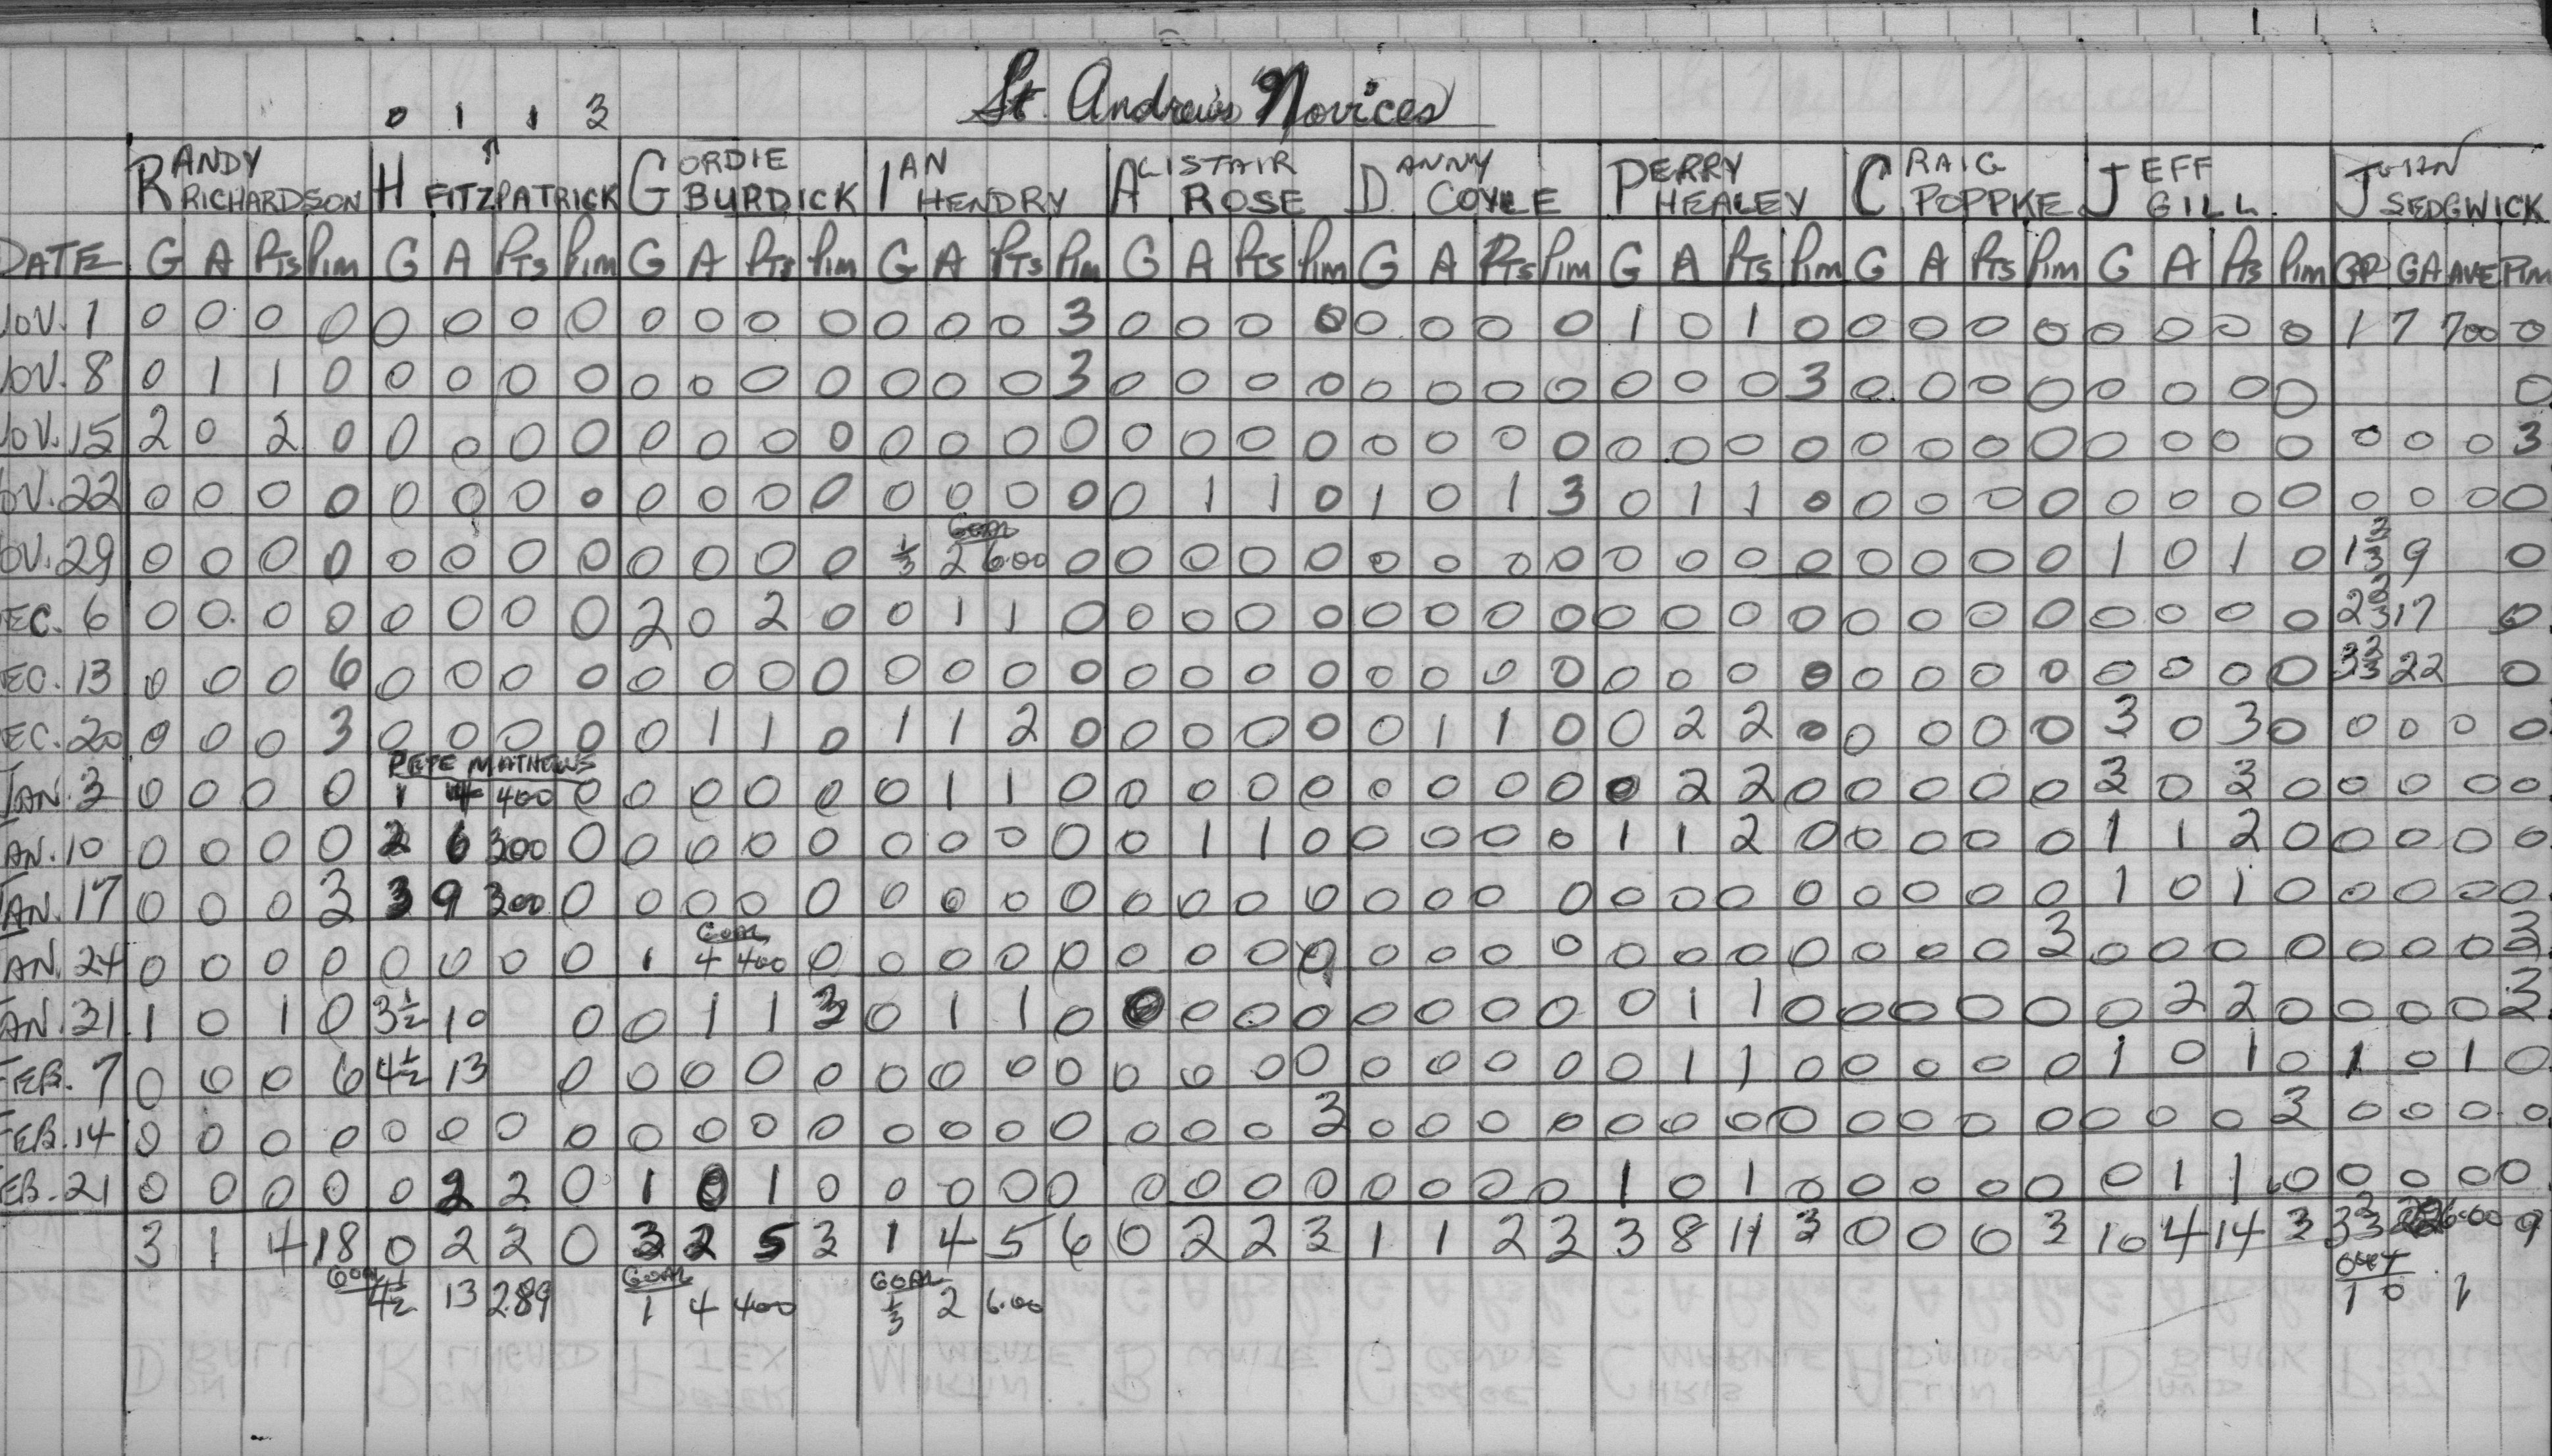 St. Andrews Novices
0 1 1 3
RANDY RICHARDSON H FITZPATRICK GORDIE BURDICK IAN HENDRY ALISTAIR ROSE DANNY COYLE PERRY HEALEY CRAIG POPPKE JEFF GILL JOHN SEDGWICK
DATE G A Pts Pim G A Pts Pim G A Pts Pim G A Pts Pim G A Pts Pim G A Pts Pim G A Pts Pim G A Pts Pim G A Pts Pim GP GA AVE PIM
NOV. 1 0 0 0 0 0 0 0 0 0 0 0 0 0 0 0 3 0 0 0 0 0 0 0 0 1 0 1 0 0 0 0 0 0 0 0 0 1 7 700 0
NOV. 8 0 1 1 0 0 0 0 0 0 0 0 0 0 0 0 3 0 0 0 0 0 0 0 0 0 0 0 3 0 0 0 0 0 0 0 0 0
NOV. 15 2 0 2 0 0 0 0 0 0 0 0 0 0 0 0 0 0 0 0 0 0 0 0 0 0 0 0 0 0 0 0 0 0 0 0 0 0 0 0 3
NOV. 22 0 0 0 0 0 0 0 0 0 0 0 0 0 0 0 0 0 1 1 0 1 0 1 3 0 1 1 0 0 0 0 0 0 0 0 0 0 0 0 0
GOAL
NOV. 29 0 0 0 0 0 0 0 0 0 0 0 0 1/3 2 6.00 0 0 0 0 0 0 0 0 0 0 0 0 0 0 0 0 0 1 0 1 0 1 2/3 9 0
DEC. 6 0 0 0 0 0 0 0 0 2 0 2 0 0 1 1 0 0 0 0 0 0 0 0 0 0 0 0 0 0 0 0 0 0 0 0 0 2 2/3 17 0
DEC. 13 0 0 0 6 0 0 0 0 0 0 0 0 0 0 0 0 0 0 0 0 0 0 0 0 0 0 0 0 0 0 0 0 0 0 0 0 3 2/3 22 0
DEC. 20 0 0 0 3 0 0 0 0 0 1 1 0 1 1 2 0 0 0 0 0 0 1 1 0 0 2 2 0 0 0 0 0 3 0 3 0 0 0 0 0
PEPE MATHEWS
JAN. 3 0 0 0 0 1 4 400 0 0 0 0 0 0 1 1 0 0 0 0 0 0 0 0 0 0 2 2 0 0 0 0 0 3 0 3 0 0 0 0 0
JAN. 10 0 0 0 0 2 6 300 0 0 0 0 0 0 0 0 0 0 1 1 0 0 0 0 0 1 1 2 0 0 0 0 0 1 1 2 0 0 0 0 0
JAN. 17 0 0 0 3 3 9 300 0 0 0 0 0 0 0 0 0 0 0 0 0 0 0 0 0 0 0 0 0 0 0 0 0 1 0 1 0 0 0 0 0
GOAL
JAN. 24 0 0 0 0 0 0 0 0 1 4 400 0 0 0 0 0 0 0 0 0 0 0 0 0 0 0 0 0 0 0 0 3 0 0 0 0 0 0 0 3
JAN. 31 1 0 1 0 3 1/2 10 0 0 1 1 3 0 1 1 0 0 0 0 0 0 0 0 0 0 1 1 0 0 0 0 0 0 2 2 0 0 0 0 3
FEB. 7 0 0 0 6 4 1/2 13 0 0 0 0 0 0 0 0 0 0 0 0 0 0 0 0 0 0 1 1 0 0 0 0 0 1 0 1 0 1 0 1 0
FEB. 14 0 0 0 0 0 0 0 0 0 0 0 0 0 0 0 0 0 0 0 3 0 0 0 0 0 0 0 0 0 0 0 0 0 0 0 3 0 0 0 0
FEB. 21 0 0 0 0 0 2 2 0 1 0 1 0 0 0 0 0 0 0 0 0 0 0 0 0 1 0 1 0 0 0 0 0 0 1 1 0 0 0 0 0
3 1 4 18 0 2 2 0 3 2 5 3 1 4 5 6 0 2 2 3 1 1 2 3 3 8 11 3 0 0 0 3 10 4 14 3 3 2/3 22 6.00 9
GOAL 4 1/2 13 2.89 GOAL 1 4 400 GOAL 1/3 2 6.00 OUT 1 0 1